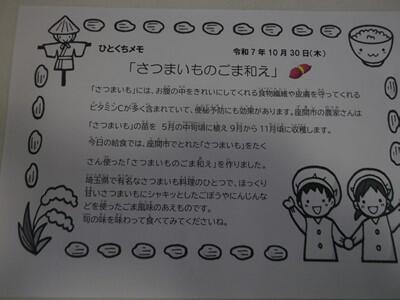 ひとくちメモ
令和7年10月30日(木)
「さつまいものごま和え」
「さつまいも」には、お腹の中をきれいにしてくれる食物繊維や皮膚を守ってくれる
ビタミンCが多く含まれていて、便秘予防にも効果があります。座間市の農家さんは
「さつまいも」の苗を 5月の中旬頃に植え9月から11月頃に収穫します。
今日の給食では、座間市でとれた「さつまいも」をたく
さん使った「さつまいものごま和え」を作りました。
埼玉県で有名なさつまいも料理のひとつで、ほっくり
甘いさつまいもにシャキッとしたごぼうやにんじんな
どを使ったごま風味のあえものです。
旬の味を味わって食べてみてくださいね。